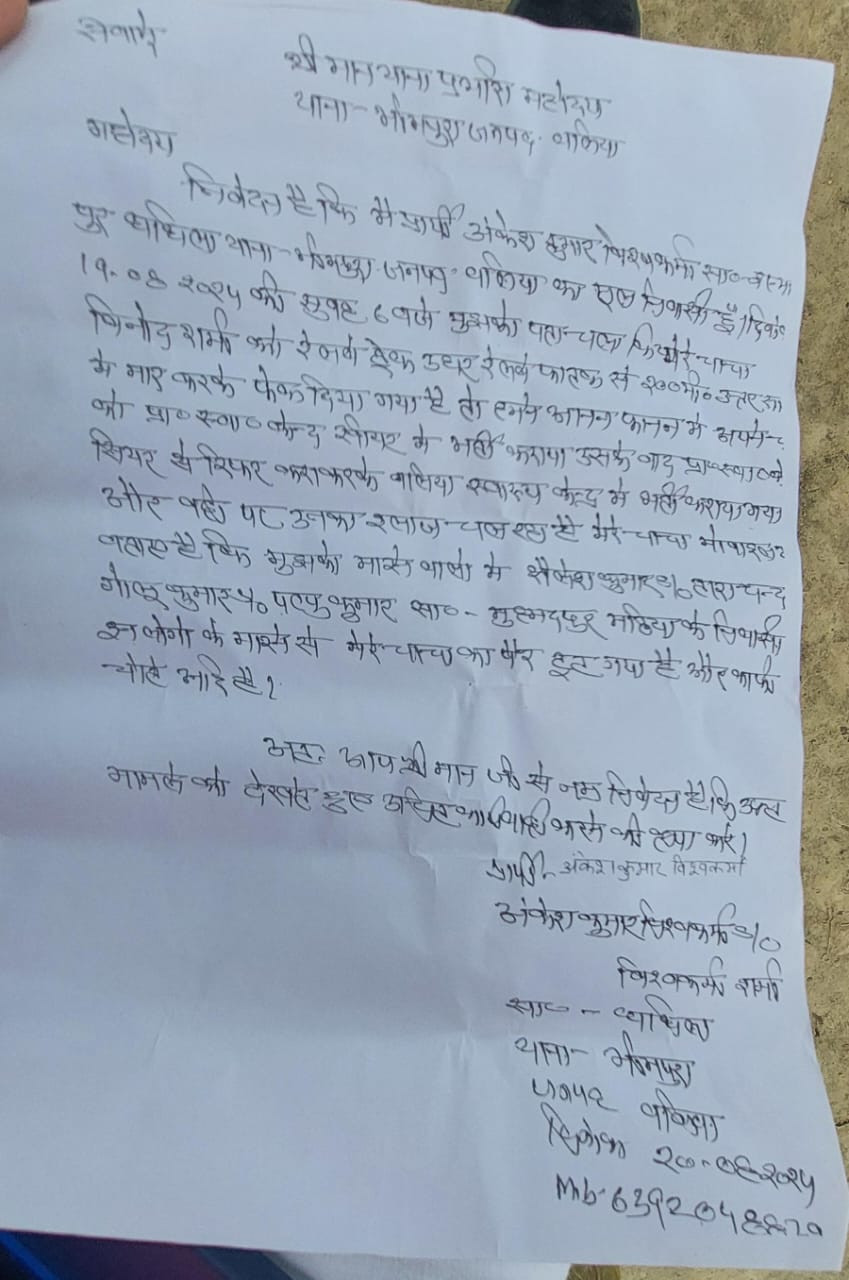 सेवामे
श्री मान थाना प्रभारी महोदय
थाना- भीमपुरा जनपद- बलिया
महोदय
निवेदन है कि मै प्रार्थी अंकेश कुमार विश्वकर्मा सा०
पुर थाना- भीमपुरा जनपद- बलिया का मूल निवासी हूँ। दिनांक
19-08 २०२५ की सुबह 6 बजे मुझको पता चला कि मेरे चाचा
विनोद शर्मा को रेलवे ट्रेक उधर रेलवे फाटक से २००मी० उत्तर
मे मार करके फेक दिया गया है तो हमने आनन फानन मे अपने
को प्रा० स्वा० केन्द्र सीयर मे भर्ती कराया उसके बाद प्रा० स्वा० के
सियर से रिफर कराकरके बलिया स्वास्थ्य केन्द्र मे भर्ती कराया गया
और वही पर उनका इलाज चल रहा है मेरे चाचा
बताए है कि मुझको मारने वालो मे शैलेश कुमार s/o तारा चन्द
गोलू कुमार s/o पप्पु कुमार सा०- मुहम्मदपुर मठिया के निवासी
इन लोगो के मारने से मेरे चाचा का पैर टूट गया है और काफी
चोटे आई है।
अतः आप श्री मान जी से नम्र निवेदन है कि उक्त
मामले को देखते हुए उचित कार्यवाही करने की कृपा करे।
प्रार्थी- अंकेश कुमार विश्वकर्मा
अंकेश कुमार विश्वकर्मा s/o
विश्वकर्मा शर्मा
सा० -
थाना- भीमपुरा
जनपद बलिया
दिनांक २०-०८-२०२५